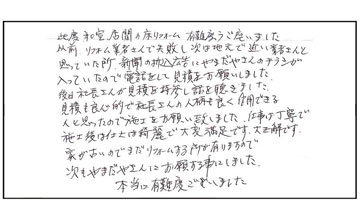 此度和室、居間の床リフォーム 有難度うございました
以前、リフォーム業者さんで失敗し次は地元で近い業者さんと
思っていた所、新聞の折込広告にやまだやさんのチラシが
入っていたので電話をして見積をお願いしました。
後日社長さんが見積を持参し話を聴きました。
見積も良心的で社長さんの人柄も良く信用できる
人と思ったので施工をお願い致しました。仕事は丁寧で
施工後は仕上は綺麗で大変満足です。大正解です。
家が古いのでまだリフォームする所が有りますので
次もやまだやさんにお願いする事にしました。
本当に有難度ございました